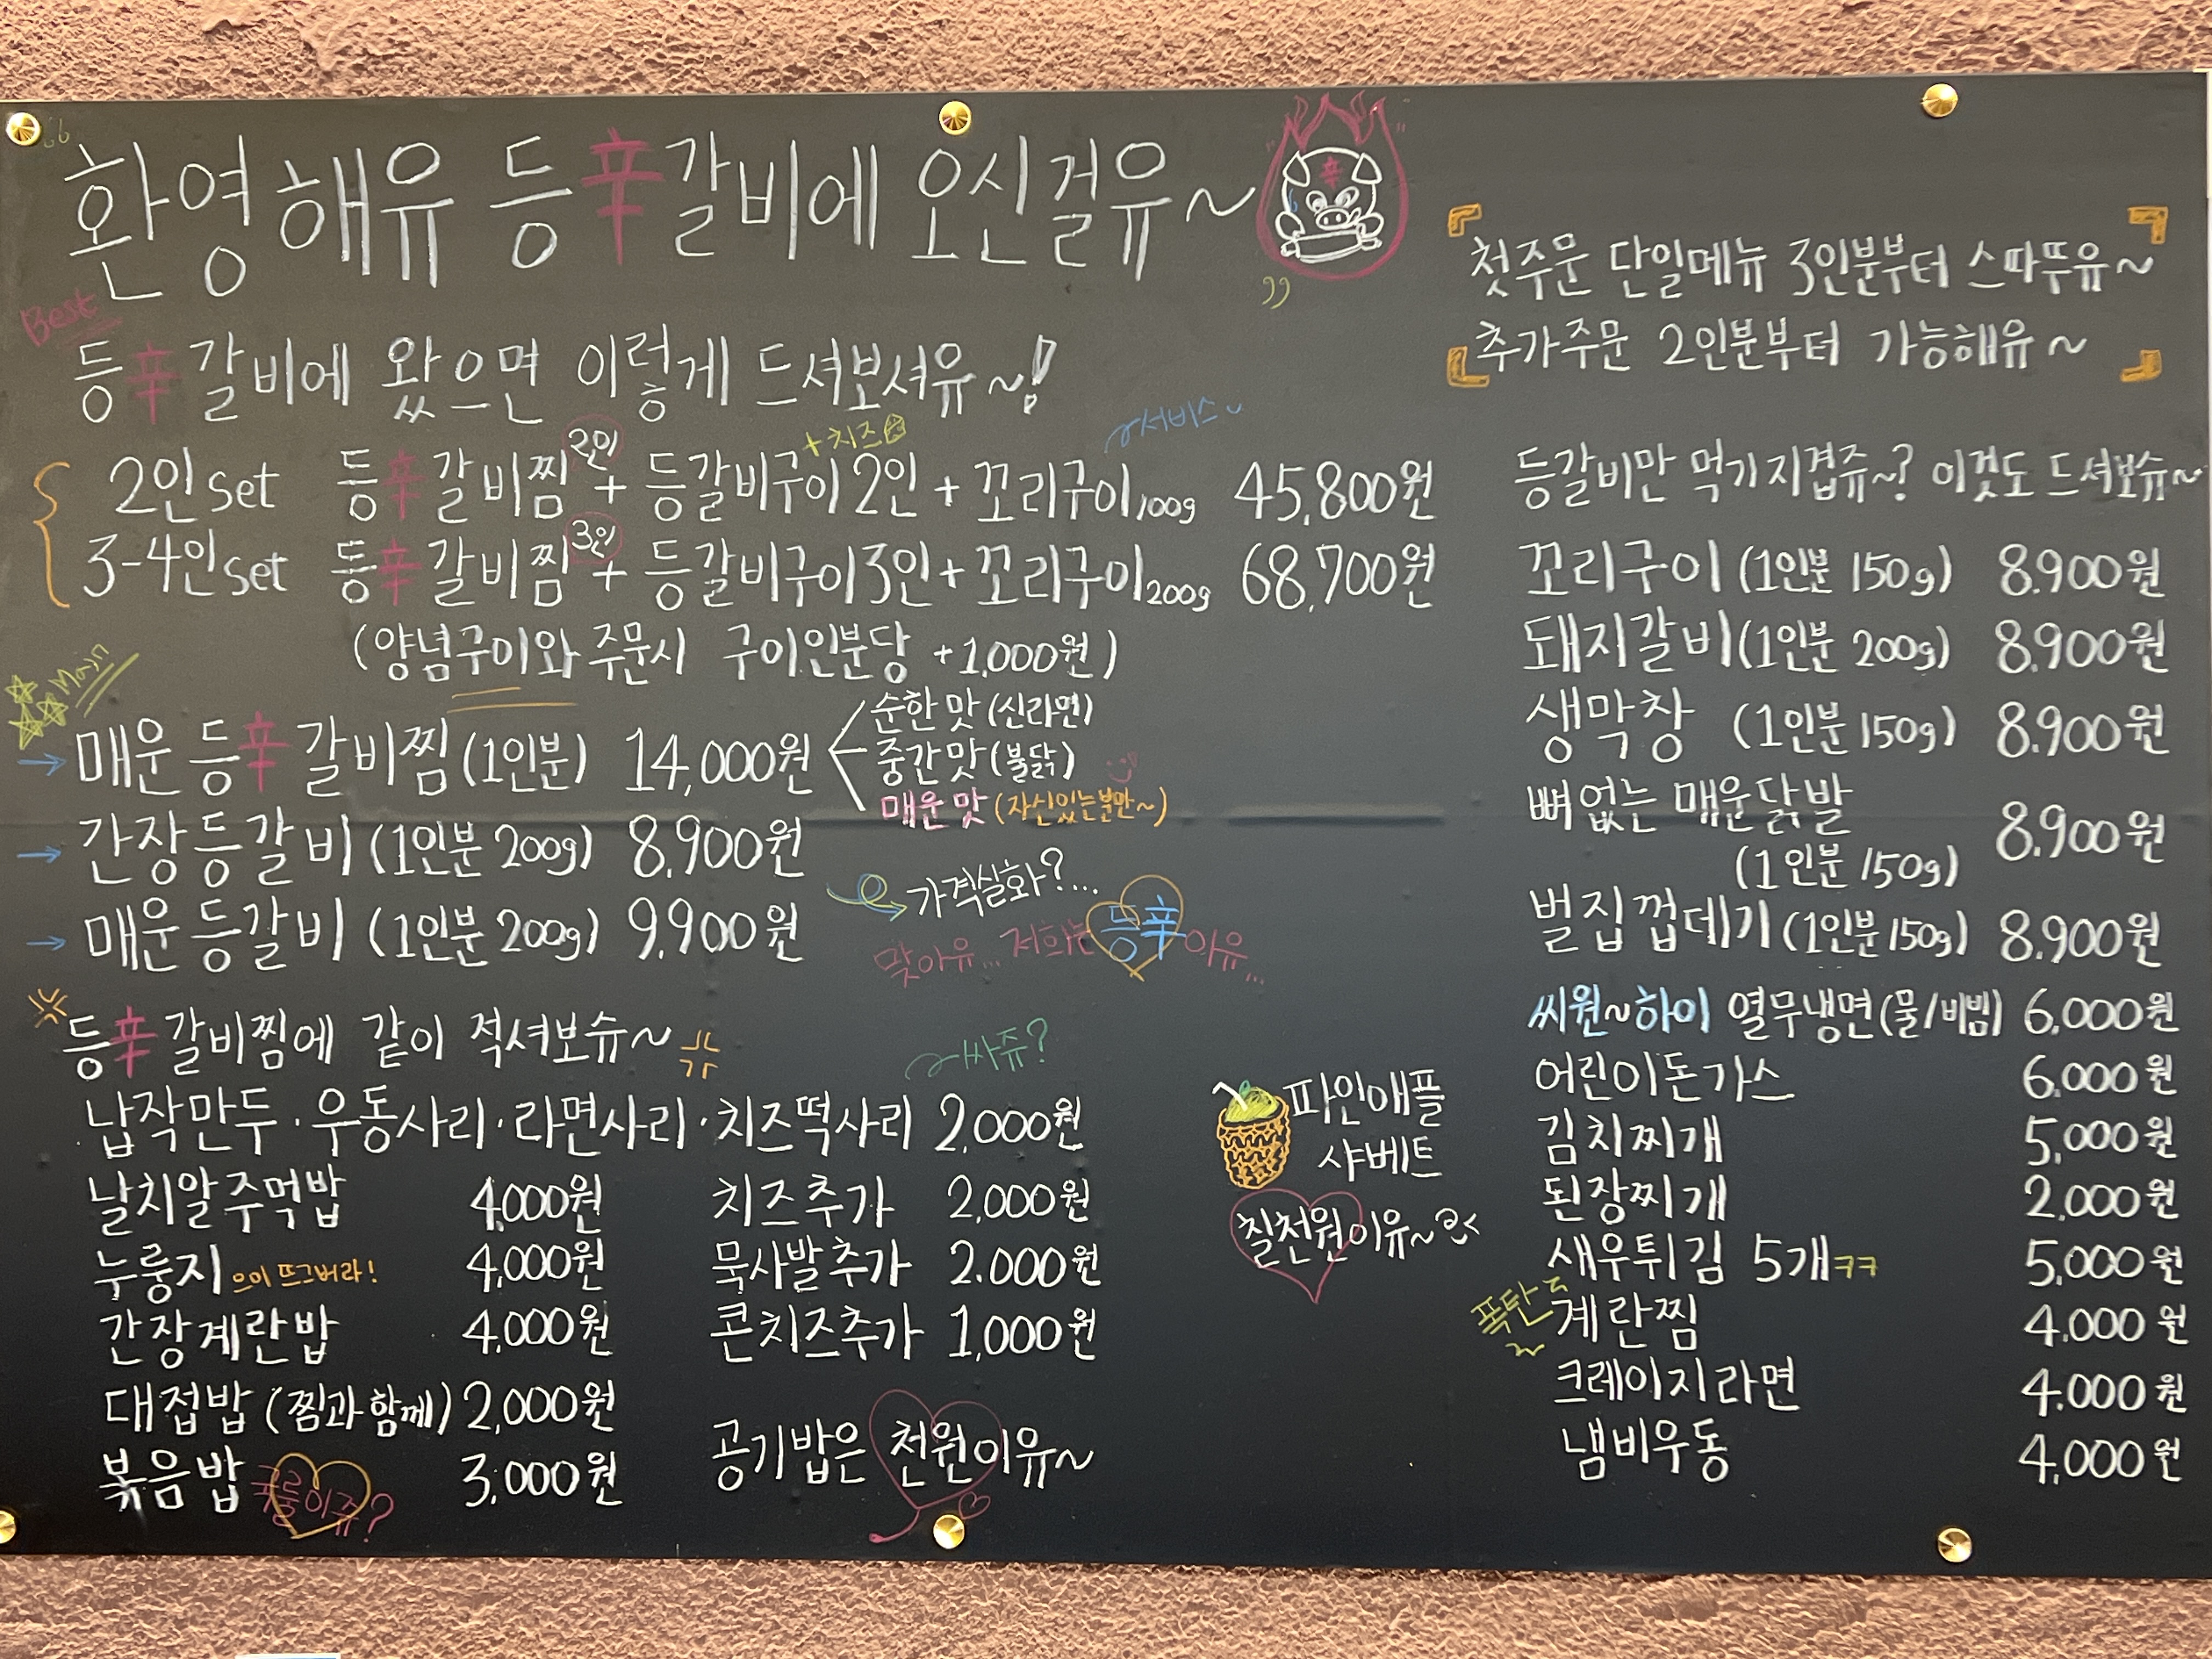 환영해유 등辛갈비에 오신걸유~
辛
Best
등辛갈비에 왔으면 이렇게 드셔보셔유~!
+치즈
서비스
2인set 등辛갈비찜 2인 + 등갈비구이 2인 + 꼬리구이 100g 45,800원
3-4인set 등辛갈비찜 3인 + 등갈비구이 3인 + 꼬리구이 200g 68,700원
(양념구이와 주문시 구이인분당 +1,000원)
Main
→ 매운 등辛갈비찜 (1인분) 14,000원
순한맛 (신라면)
중간맛 (불닭)
매운맛 (자신있는분만~)
→ 간장등갈비 (1인분 200g) 8,900원
→ 매운등갈비 (1인분 200g) 9,900원
가격실화?...
맞아유... 저희는 등辛이유...
등辛갈비찜에 같이 적셔보슈~
싸쥬?
납작만두·우동사리·라면사리·치즈떡사리 2,000원
날치알주먹밥 4,000원
누룽지 으이 뜨그버라! 4,000원
간장계란밥 4,000원
대접밥 (찜과함께) 2,000원
볶음밥 국룰이쥬? 3,000원
치즈추가 2,000원
묵사발추가 2.000원
콘치즈추가 1,000원
공기밥은 천원이유~
파인애플
샤베트
칠천원이유~
첫주문 단일메뉴 3인분부터 스따뚜유~
추가주문 2인분부터 가능해유~
등갈비만 먹기지겹쥬~? 이것도 드셔보슈~
꼬리구이 (1인분 150g) 8.900원
돼지갈비 (1인분 200g) 8.900원
생막창 (1인분 150g) 8.900원
뼈없는 매운닭발
(1인분 150g) 8.900원
벌집껍데기 (1인분 150g) 8.900원
씨원~하이 열무냉면 (물/비빔) 6,000원
어린이돈가스 6,000원
김치찌개 5,000원
된장찌개 2,000원
새우튀김 5개 ㅋㅋ 5,000원
폭탄 계란찜 4,000원
크레이지라면 4.000원
냄비우동 4,000원